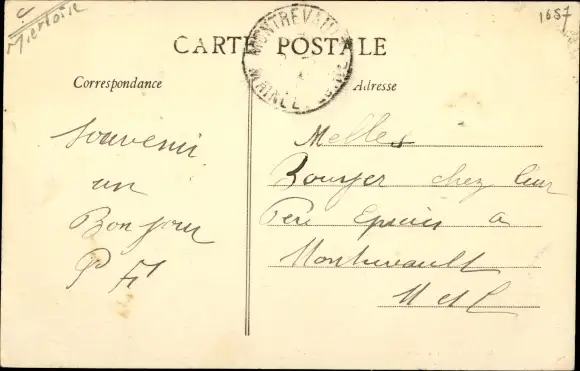 1657
CARTE POSTALE
MONTREVAULT
MAINE ET LOIRE
Correspondance
Adresse
Souvenir
un
Bonjour
P
Melles
chez leur
Père Epicier a
Montrevault
M et L